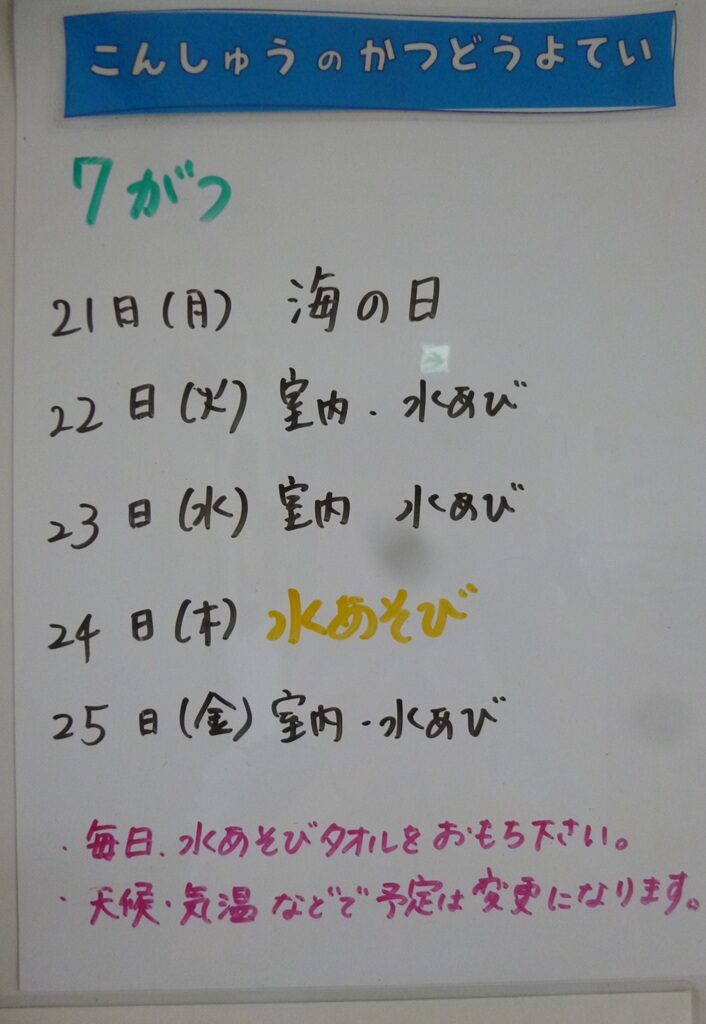 こんしゅうのかつどうよてい
7がつ
21日(月) 海の日
22日(火) 室内・水あび
23日(水) 室内 水あび
24日(木) 水あそび
25日(金) 室内・水あび
・毎日、水あそびタオルをおもち下さい。
・天候・気温などで予定は変更になります。